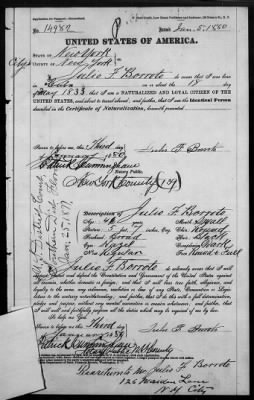 No. 14987 Issued Jan. 5, 1880
UNITED STATES OF AMERICA.
STATE OF New York
COUNTY OF New York
I, Julio F. Borroto do swear that I was
born in Cuba on or about the 15 day of
May 1833 that I am a NATURALIZED AND LOYAL CITIZEN OF THE
UNITED STATES, and about to travel abroad; and further, that I am the Identical Person
described in the Certificate of Naturalization, herewith presented.
Sworn to before me, this Third
day of January 1880
Julio F. Borroto
Notary Public.
New York County
Description of Julio F. Borroto
Age: 46
Stature: 5 ft 7
Forehead: Broad
Eyes: Hazel
Nose: Regular
Mouth: Small
Chin: Round
Hair: Black
Complexion: Dark
Face: Round & Full
I, Julio F. Borroto do solemnly swear that I will
support, protect and defend the Constitution and Government of the United States
against all enemies, whether domestic or foreign; and that I will bear true faith, allegiance and
loyalty to the same, any ordinance, resolution or law of any State, Convention or Legis-
lature to the contrary notwithstanding; and further, that I do this with a full determination,
pledge and purpose, without any mental reservation or evasion whatsoever; and further, that
I will well and faithfully perform all the duties which may be required of me by law.
So help me God.
Sworn to before me, this Third
day of January 1880
Julio F. Borroto
Notary Public
Julio F. Borroto
126 Maiden Lane
N.Y. City